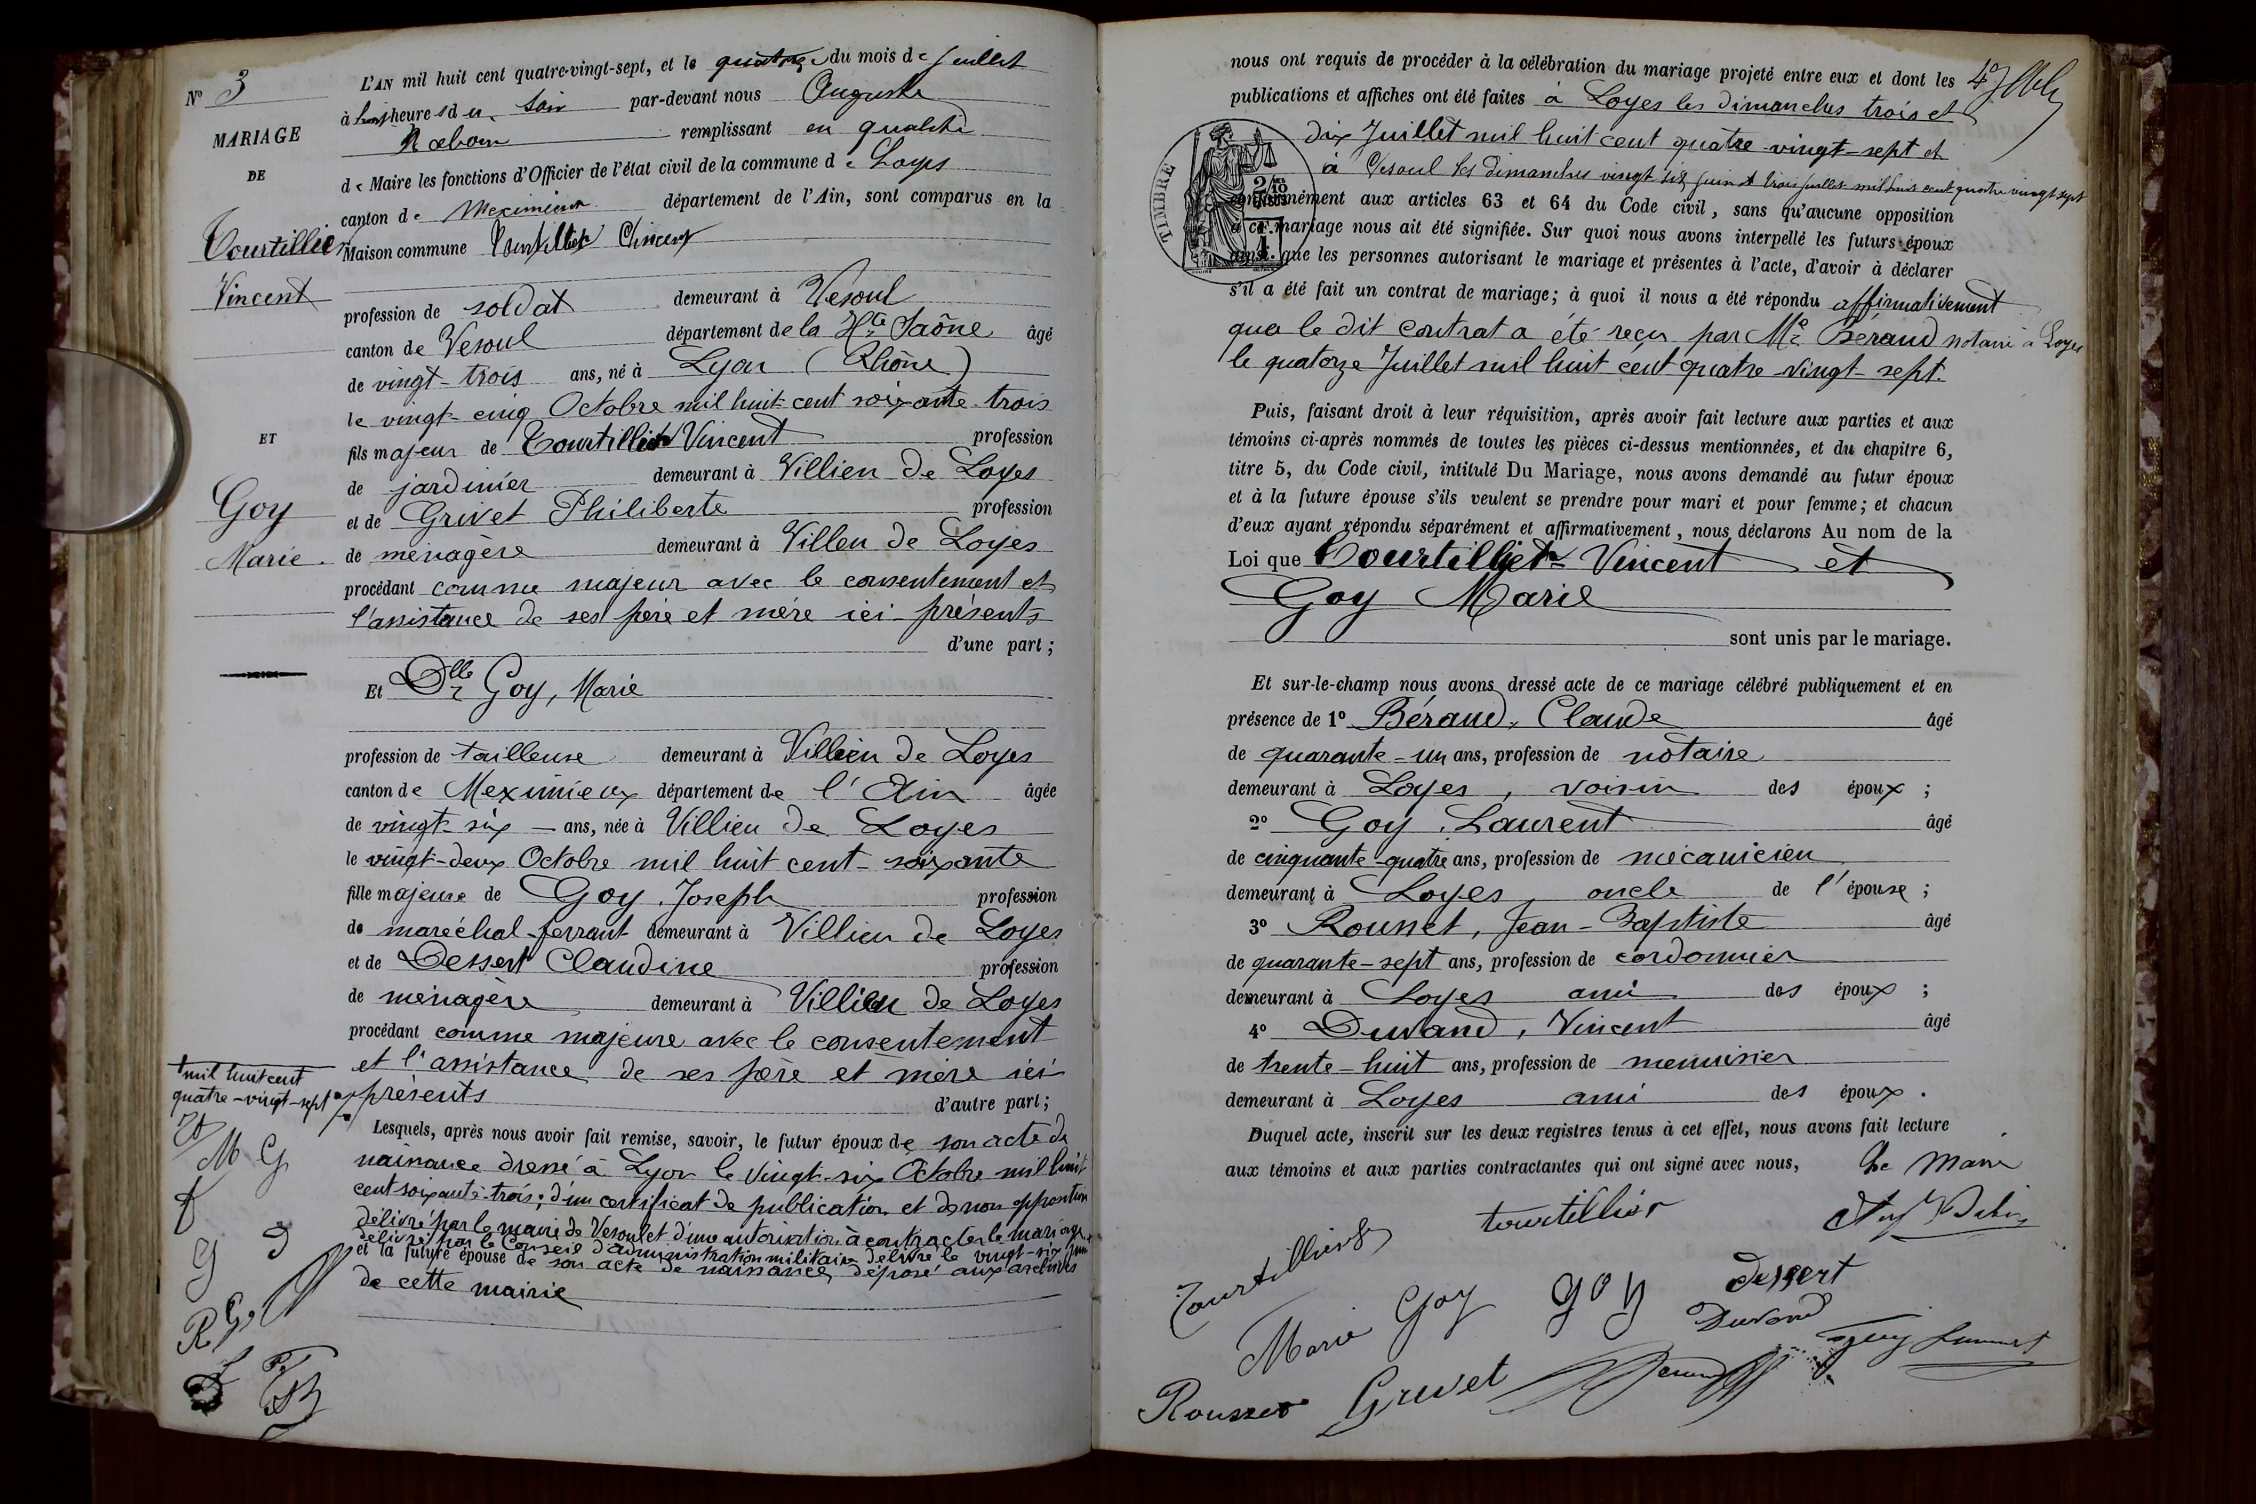 N° 3
MARIAGE
DE
Tourtillier
Vincent
ET
Goy
Marie.
L'AN mil huit cent quatre-vingt-sept, et le quatorze du mois de Juillet
à heures du soir par-devant nous Auguste
remplissant en qualité
de Maire les fonctions d'Officier de l'état civil de la commune de Loyes
canton de Meximieux département de l'Ain, sont comparus en la
Maison commune Tourtillier Vincent
profession de soldat demeurant à Vesoul
canton de Vesoul département de la Hte Saône âgé
de vingt-trois ans, né à Lyon (Rhône)
le vingt-cinq Octobre mil huit cent soixante-trois
fils majeur de Tourtillier Vincent profession
de jardinier demeurant à Villieu de Loyes
et de Grivet Philiberte profession
de ménagère demeurant à Villeu de Loyes
procédant comme majeur avec le consentement et
l'assistance de ses père et mère ici présents
d'une part;
Et Dlle Goy, Marie
profession de tailleuse demeurant à Villieu de Loyes
canton de Meximieux département de l'Ain âgée
de vingt-six ans, née à Villieu de Loyes
le vingt-deux Octobre mil huit cent-soixante
fille majeure de Goy, Joseph profession
de maréchal-ferrant demeurant à Villieu de Loyes
et de Dessert Claudine profession
de ménagère demeurant à Villieu de Loyes
procédant comme majeure avec le consentement
et l'assistance de ses père et mère ici
présents
d'autre part;
Lesquels, après nous avoir fait remise, savoir, le futur époux de son acte de
naissance dressé à Lyon le vingt-six Octobre mil huit
cent soixante-trois; d'un certificat de publication et de non opposition
délivré par le maire de Vesoul et d'une autorisation à contracter le mariage
délivré par le Conseil d'administration militaire délivré le vingt-six Juin
et la future épouse de son acte de naissance, déposé aux archives
de cette mairie
mil huit cent
quatre-vingt-sept
M G
G
R
nous ont requis de procéder à la célébration du mariage projeté entre eux et dont les
publications et affiches ont été faites à Loyes les dimanches trois et
dix Juillet mil huit cent quatre-vingt-sept et
à Vesoul les dimanches vingt six Juin et trois Juillet mil huit cent quatre vingt sept
TIMBRE
conformément aux articles 63 et 64 du Code civil, sans qu'aucune opposition
à ce mariage nous ait été signifiée. Sur quoi nous avons interpellé les futurs époux
ainsi que les personnes autorisant le mariage et présentes à l'acte, d'avoir à déclarer
s'il a été fait un contrat de mariage; à quoi il nous a été répondu affirmativement
que le dit contrat a été reçu par Me Béraud notaire à Loyes
le quatorze Juillet mil huit cent quatre-vingt-sept.
Puis, faisant droit à leur réquisition, après avoir fait lecture aux parties et aux
témoins ci-après nommés de toutes les pièces ci-dessus mentionnées, et du chapitre 6,
titre 5, du Code civil, intitulé Du Mariage, nous avons demandé au futur époux
et à la future épouse s'ils veulent se prendre pour mari et pour femme; et chacun
d'eux ayant répondu séparément et affirmativement, nous déclarons Au nom de la
Loi que Tourtillier Vincent et
Goy Marie
sont unis par le mariage.
Et sur-le-champ nous avons dressé acte de ce mariage célébré publiquement et en
présence de 1° Béraud, Claude âgé
de quarante-un ans, profession de notaire
demeurant à Loyes, voisin des époux;
2° Goy, Laurent âgé
de cinquante-quatre ans, profession de mécanicien
demeurant à Loyes, oncle de l'épouse;
3° Rousset, Jean-Baptiste âgé
de quarante-sept ans, profession de cordonnier
demeurant à Loyes ami des époux;
4° Durand, Vincent âgé
de trente-huit ans, profession de menuisier
demeurant à Loyes ami des époux.
Duquel acte, inscrit sur les deux registres tenus à cet effet, nous avons fait lecture
aux témoins et aux parties contractantes qui ont signé avec nous, Le Maire
Tourtillier
tourtillier
Marie Goy
goy
dessert
Durand
Rousset
Grivet
Beraud